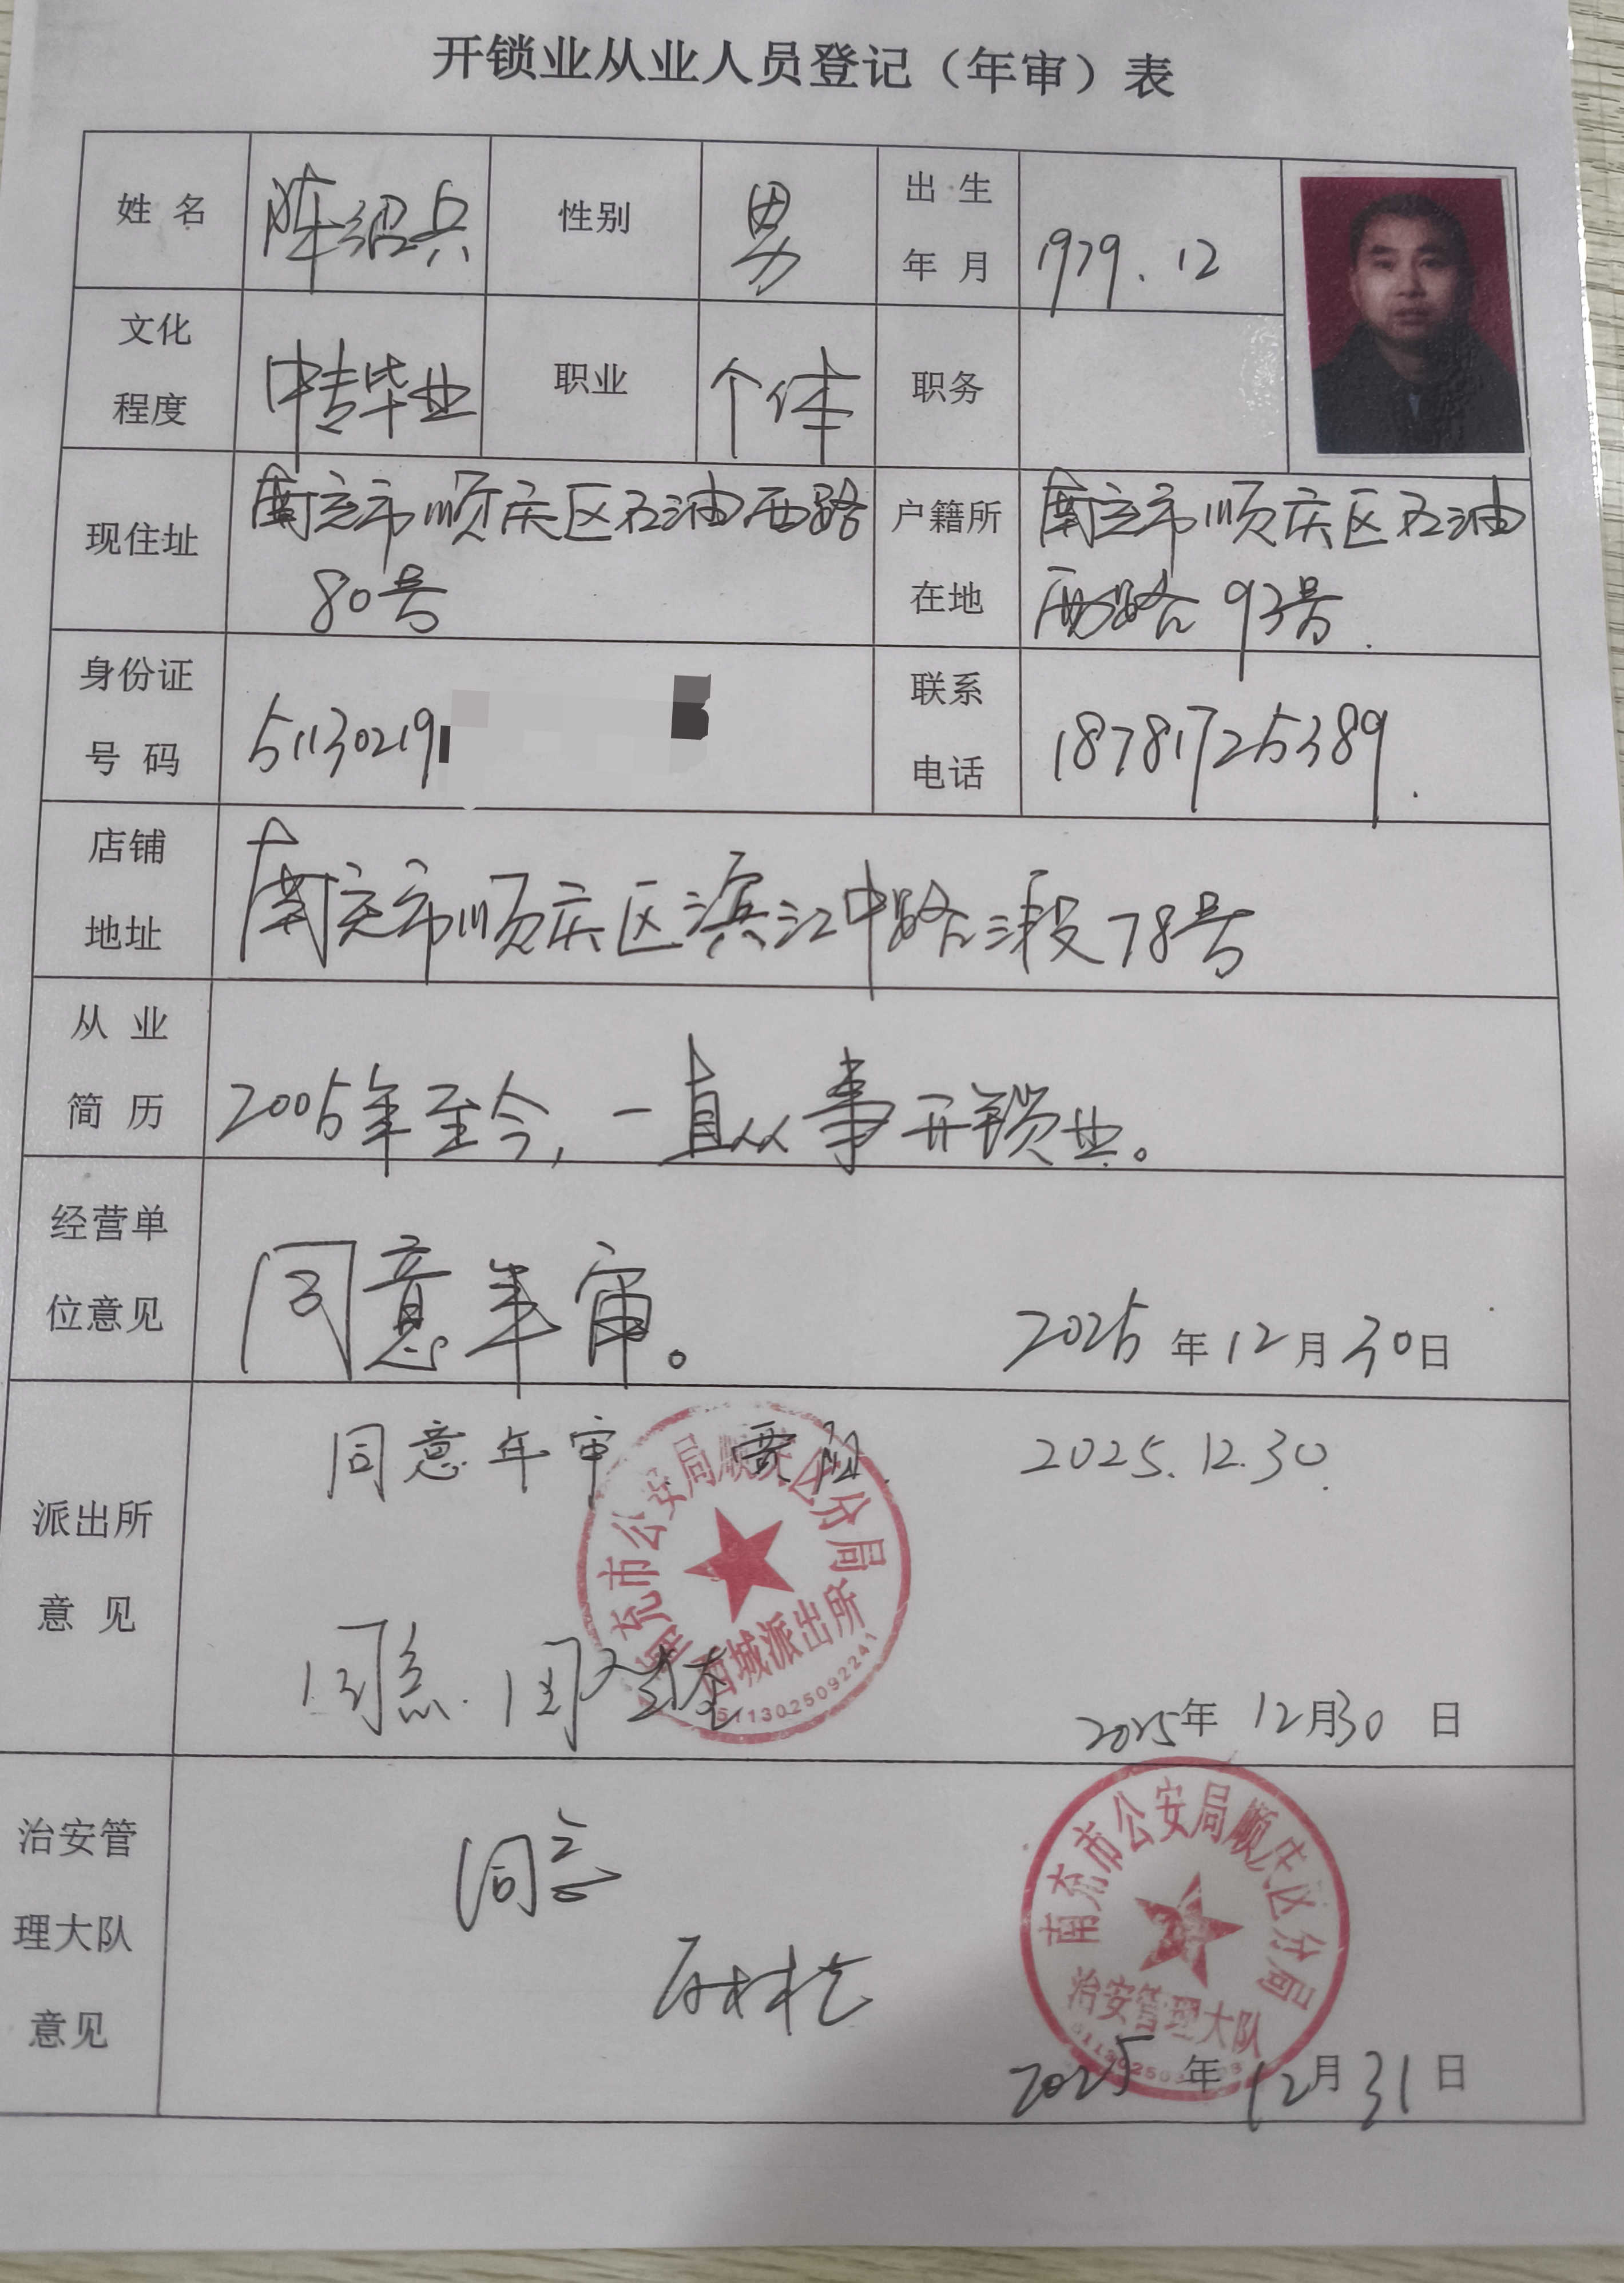 开锁业从业人员登记（年审）表
姓 名 陈绍兵 性别 男 出 生 年 月 1979.12
文化程度 中专毕业 职业 个体 职务
现住址 南充市顺庆区石油西路80号 户籍所在地 南充市顺庆区石油西路93号.
身份证号 码 51130219 联系电话 18781725389.
店铺地址 南充市顺庆区滨江中路三段78号
从 业 简 历 2005年至今，一直从事开锁业。
经营单位意见 同意年审。 2025年12月30日
派出所意 见 同意年审 2025.12.30.
南充市公安局顺庆区分局
西城派出所
5113025092241
同意.
2025年12月30日
治安管理大队意见 同意
南充市公安局顺庆区分局
治安管理大队
2025年12月31日